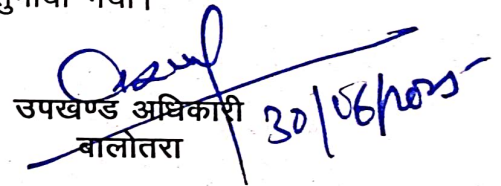 सुनाया गया।
उपखण्ड अधिकारी
बालोतरा
30/06/2025